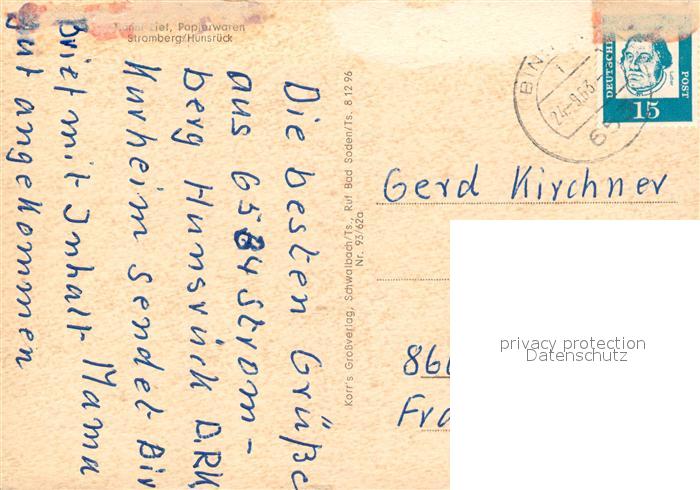 Lief, Papierwaren
Stromberg/Hunsrück
Die besten Grüße
aus 6534 Strom-
berg Hunsrück DRK
Kurheim sendet Dir
Brief mit Inhalt Mama
gut angekommen
Korr's Großverlag, Schwalbach/Ts., Ruf Bad Soden/Ts. 8 12 96
Nr. 93/62a
BIN
24-9.63
65
DEUTSCHE
POST
15
Gerd Kirchner
privacy protection
Datenschutz